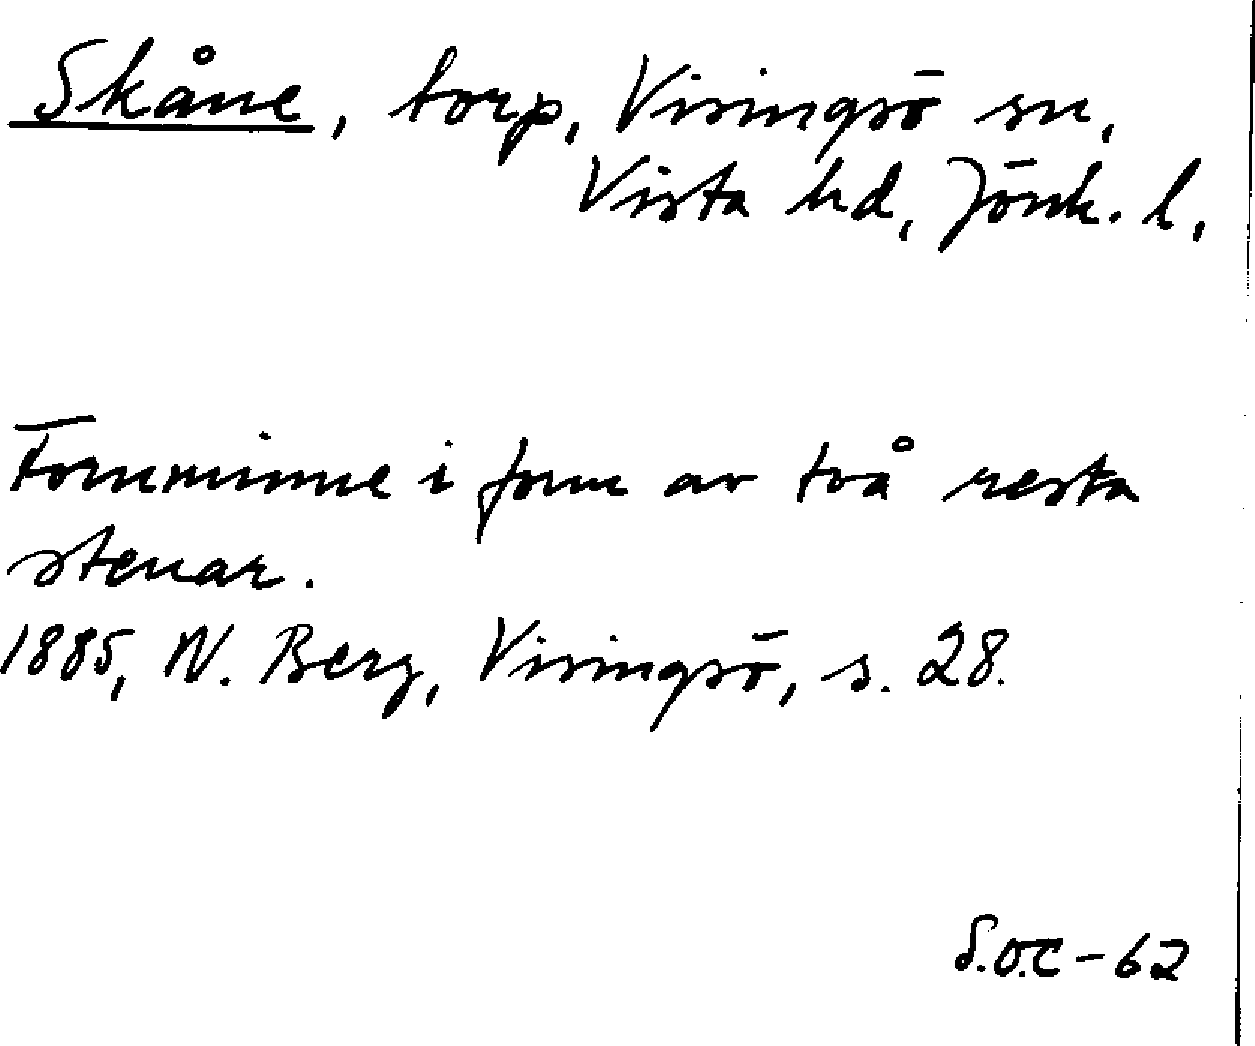 Skåne, torp, Visingsö sn,
Vista hd, Jönk. l,
Fornminne i form av två resta
stenar.
1885, W. Berg, Visingsö, s. 28.
S.O.C - 62